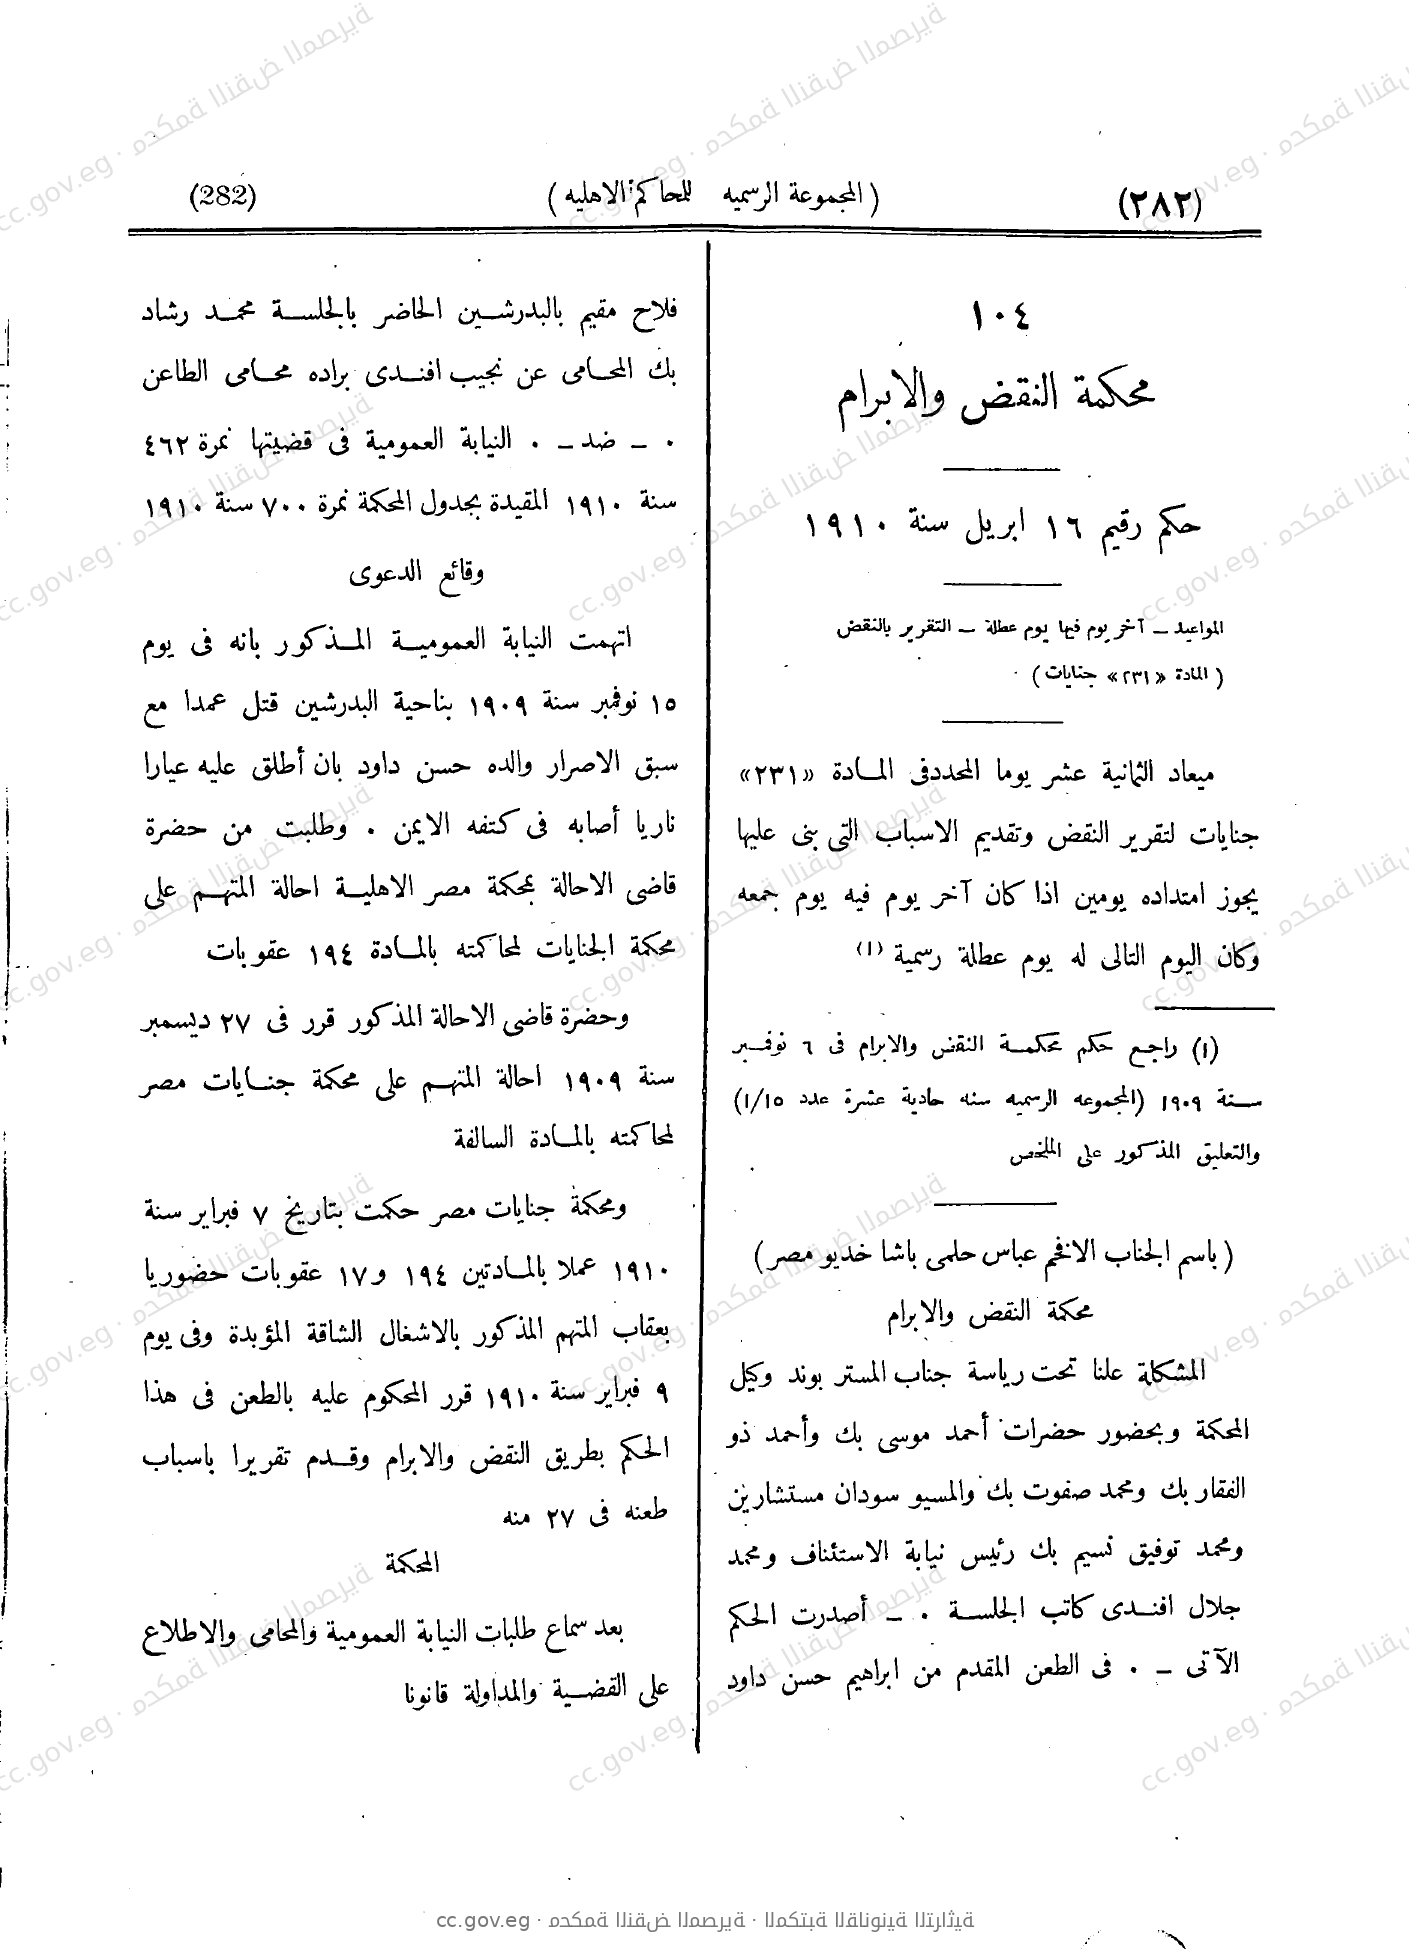 (٢٨٢)
(المجموعة الرسميه للمحاكم الاهليه)
(282)
١٠٤
محكمة النقض والابرام
حكم رقيم ١٦ ابريل سنة ١٩١٠
المواعيد ــ آخر يوم فيها يوم عطلة ــ التقرير بالنقض
(المادة «٢٣١» جنايات)
ميعاد الثمانية عشر يوما المحدد فى المادة «٢٣١»
جنايات لتقرير النقض وتقديم الاسباب التى بنى عليها
يجوز امتداده يومين اذا كان آخر يوم فيه يوم جمعه
وكان اليوم التالى له يوم عطلة رسمية (١)
(١) راجع حكم محكمة النقض والابرام فى ٦ نوفمبر
سنة ١٩٠٩ (المجموعه الرسميه سنه حادية عشرة عدد ١/١٥)
والتعليق المذكور على الملخص
(باسم الجناب الافخم عباس حلمى باشا خديو مصر)
محكمة النقض والابرام
المشكلة علنا تحت رياسة جناب المستر بوند وكيل
المحكمة وبحضور حضرات أحمد موسى بك وأحمد ذو
الفقار بك ومحمد صفوت بك والمسيو سودان مستشارين
ومحمد توفيق نسيم بك رئيس نيابة الاستئناف ومحمد
جلال افندى كاتب الجلسة . ــ أصدرت الحكم
الآتى ــ . فى الطعن المقدم من ابراهيم حسن داود
فلاح مقيم بالبدرشين الحاضر بالجلسة محمد رشاد
بك المحامى عن نجيب افندى براده محامى الطاعن
. ــ ضد ــ . النيابة العمومية فى قضيتها نمرة ٤٦٢
سنة ١٩١٠ المقيدة بجدول المحكمة نمرة ٧٠٠ سنة ١٩١٠
وقائع الدعوى
اتهمت النيابة العمومية المذكور بانه فى يوم
١٥ نوفمبر سنة ١٩٠٩ بناحية البدرشين قتل عمدا مع
سبق الاصرار والده حسن داود بان أطلق عليه عيارا
ناريا أصابه فى كتفه الايمن . وطلبت من حضرة
قاضى الاحالة بمحكمة مصر الاهلية احالة المتهم على
محكمة الجنايات لمحاكمته بالمادة ١٩٤ عقوبات
وحضرة قاضى الاحالة المذكور قرر فى ٢٧ ديسمبر
سنة ١٩٠٩ احالة المتهم على محكمة جنايات مصر
لمحاكمته بالمادة السالفة
ومحكمة جنايات مصر حكمت بتاريخ ٧ فبراير سنة
١٩١٠ عملا بالمادتين ١٩٤ و١٧ عقوبات حضوريا
بعقاب المتهم المذكور بالاشغال الشاقة المؤبدة وفى يوم
٩ فبراير سنة ١٩١٠ قرر المحكوم عليه بالطعن فى هذا
الحكم بطريق النقض والابرام وقدم تقريرا باسباب
طعنه فى ٢٧ منه
المحكمة
بعد سماع طلبات النيابة العمومية والمحامى والاطلاع
على القضية والمداولة قانونا
cc.gov.eg · محكمة النقض المصرية · المكتبة القانونية التراثية